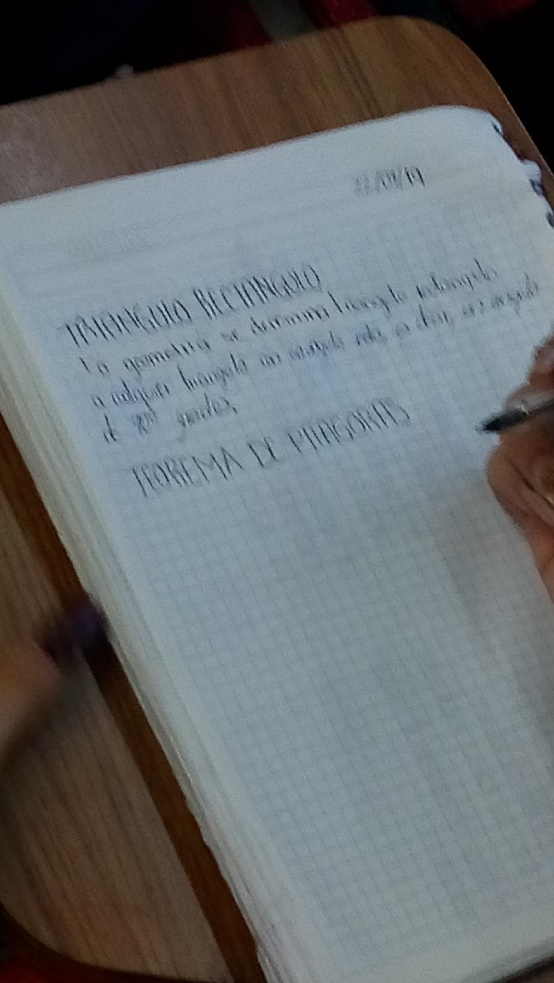 TRIANGULO RECTANGULO
geometria se denomina triangulo rectangulo
a triangulo un angulo es decir, un angulo
de 90º grados.
TEOREMA DE PITAGORAS